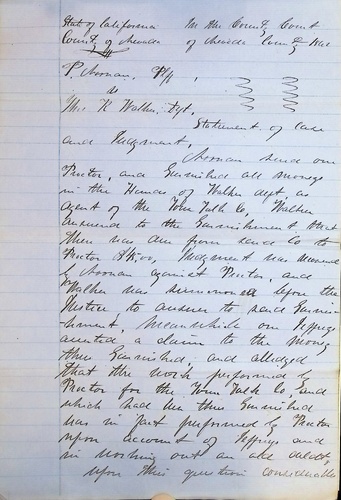 State of California In the County Court
County of Nevada of Nevada County
P. Noonan, Plff
vs
Thos. R. Walker, Dft.
Statement of Case
and Judgment.
Noonan sued one
Proctor, and Garnished all moneys
in the Hands of Walker dept as
agent of the Co. Walker
answered to the Garnishment that
there was due from said Co to
Proctor Judgment was
by Noonan against Proctor, and
Walker was summoned before the
Justice to answer to said Garnish-
ment, meanwhile one Jeffreys
asserted a claim to the money
thus Garnished, and alledged
that the work performed by
Proctor for the Co, and
which had been thus Garnished
was in fact performed by Proctor
upon account of Jeffreys and
in working out an old debt,
upon this question considerable